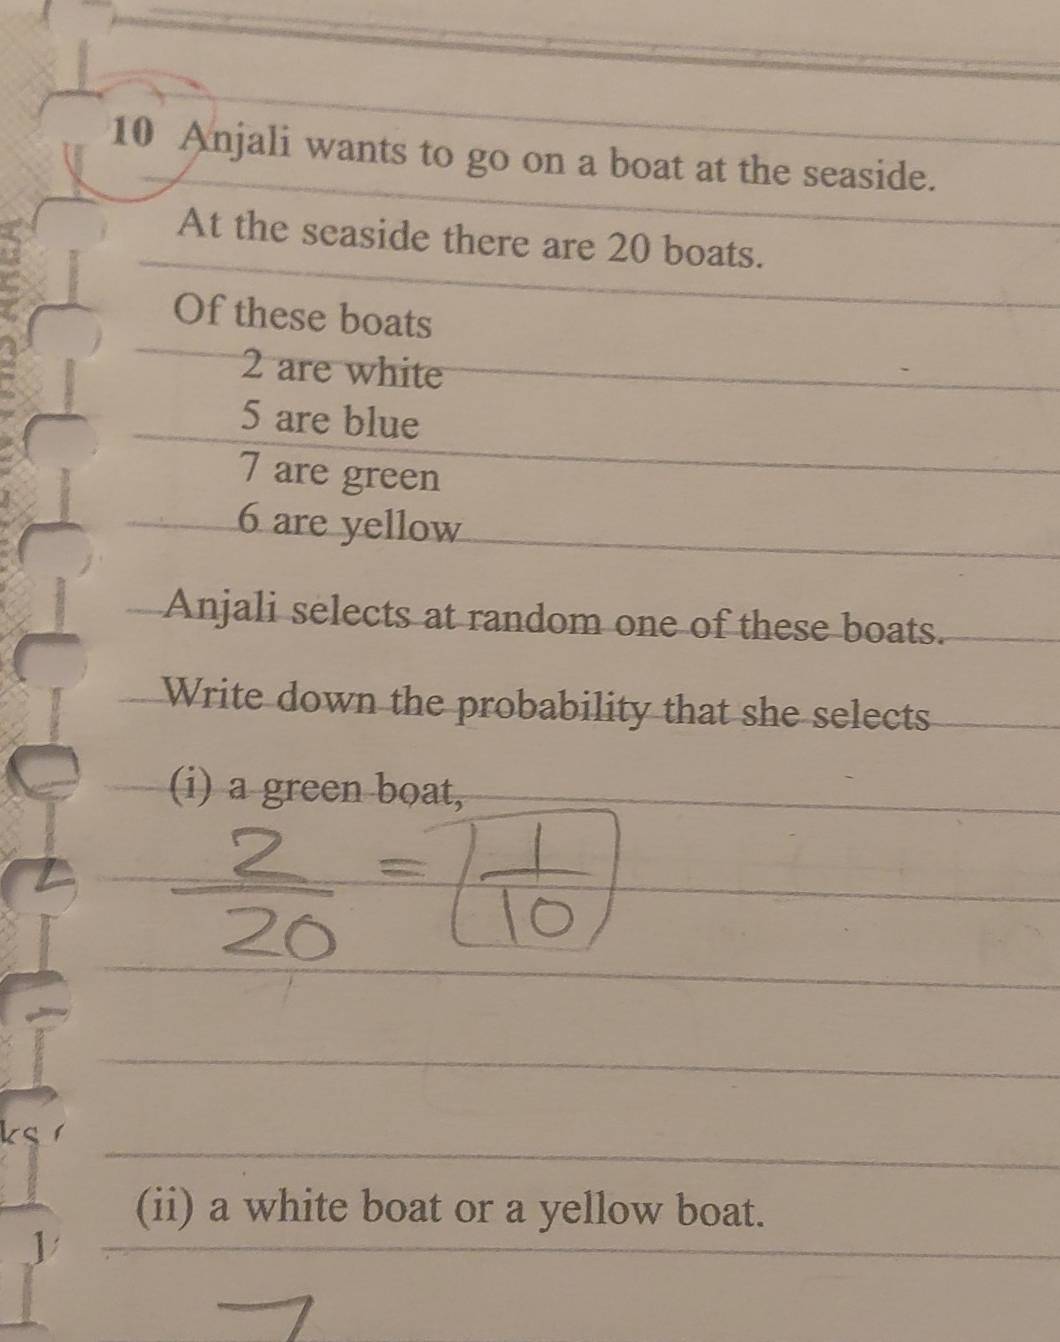 10 Anjali wants to go on a boat at the seaside.
At the seaside there are 20 boats.
Of these boats
2 are white
5 are blue
7 are green
6 are yellow
Anjali selects at random one of these boats.
Write down the probability that she selects
(i) a green boat,
2/20 = 1/10
(ii) a white boat or a yellow boat.